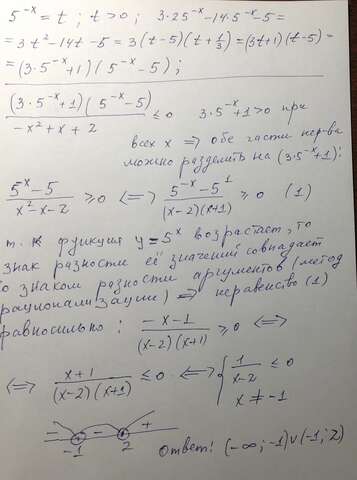 5^{-x} = t ; t > 0 ; 3·25^{-x} - 14·5^{-x} - 5 =
= 3t² - 14t - 5 = 3(t-5)(t+1/3) = (3t+1)(t-5) =
= (3·5^{-x}+1)(5^{-x}-5) ;
(3·5^{-x}+1)(5^{-x}-5) / (-x²+x+2) ≤ 0 3·5^{-x}+1 > 0 при
всех x ⟹ обе части нер-ва
можно разделить на (3·5^{-x}+1):
(5^{-x}-5) / (x²-x-2) ≥ 0 ⟺ (5^{-x}-5^1) / ((x-2)(x+1)) ≥ 0 (1)
т. к функция y=5^x возрастает, то
знак разности её значений совпадает
со знаком разности аргументов (метод
рационализации) ⟹ неравенство (1)
равносильно: (-x-1) / ((x-2)(x+1)) ≥ 0 ⟺
⟺ (x+1) / ((x-2)(x+1)) ≤ 0 ⟺ { 1/(x-2) ≤ 0
x ≠ -1
- - +
-1 2
Ответ: (-∞; -1)∪(-1; 2)